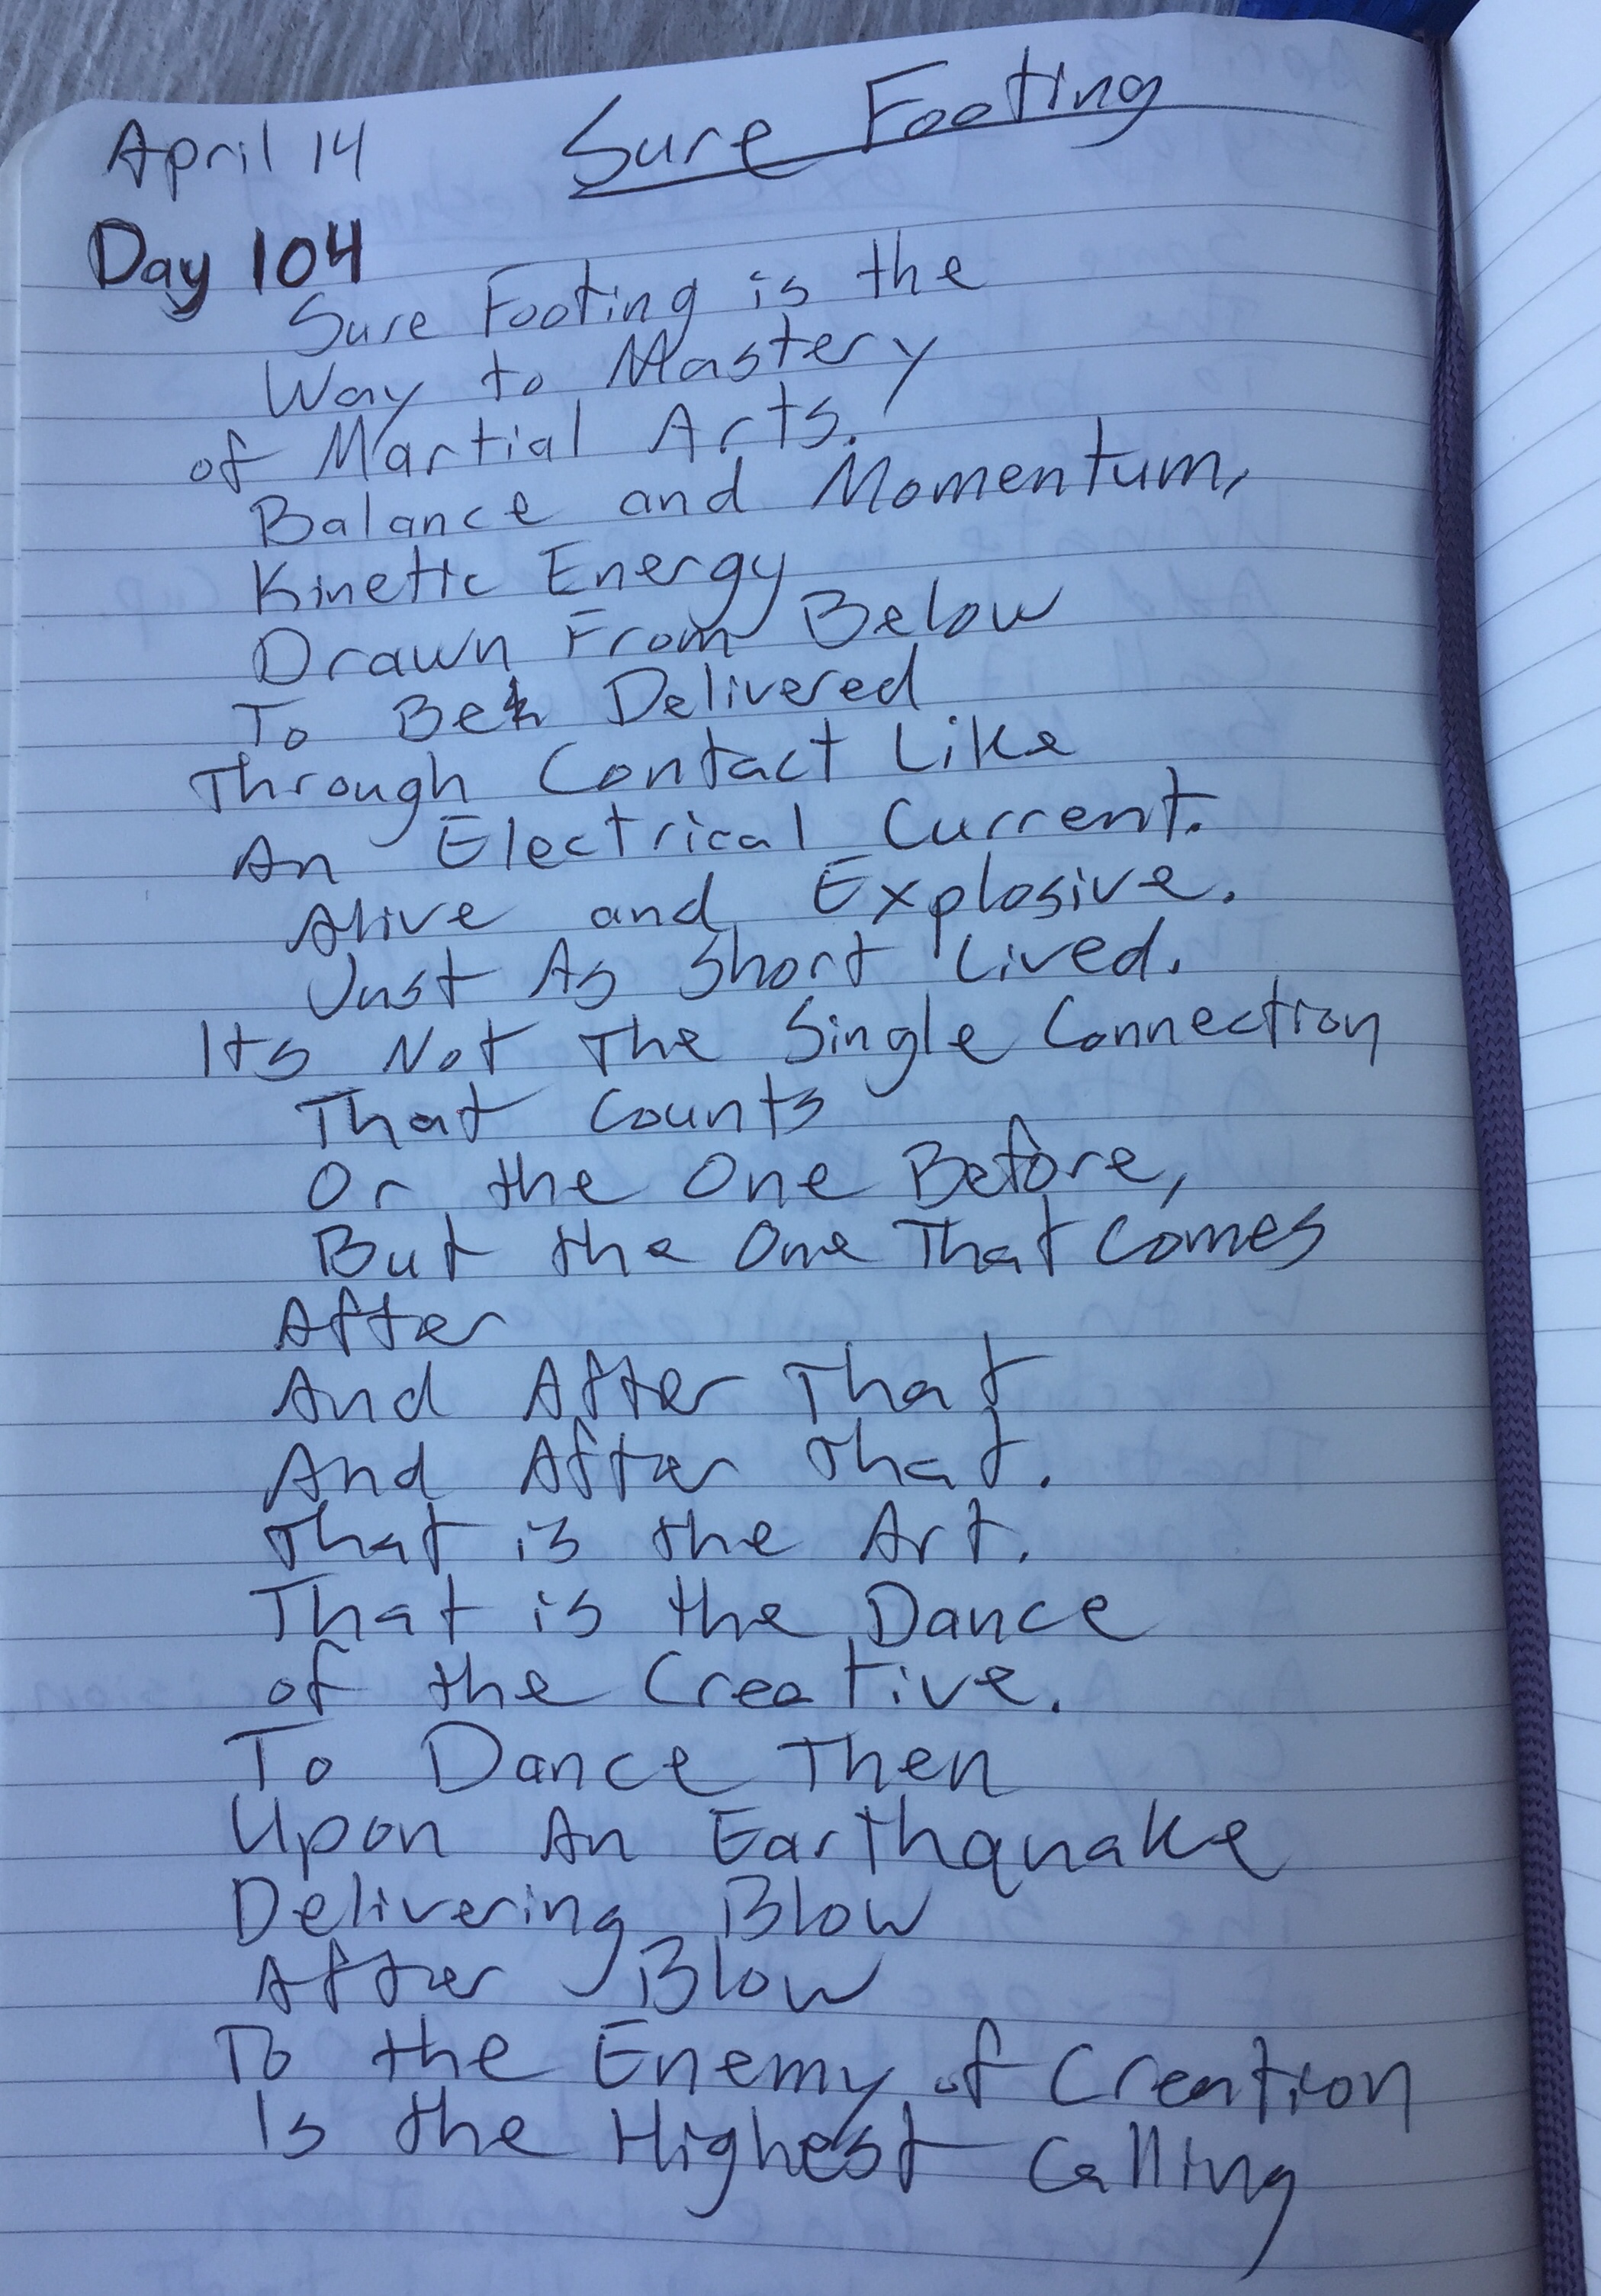 April 14 Sure Footing
Day 104
Sure Footing is the
Way to Mastery
of Martial Arts.
Balance and Momentum,
Kinetic Energy
Drawn From Below
To Be Delivered
Through Contact Like
An Electrical Current.
Alive and Explosive.
Just As Short Lived.
Its Not The Single Connection
That Counts
Or the One Before,
But the One That Comes
After
And After That
And After That.
That is the Art.
That is the Dance
of the Creative.
To Dance Then
Upon An Earthquake
Delivering Blow
After Blow
To the Enemy of Creation
Is the Highest Calling